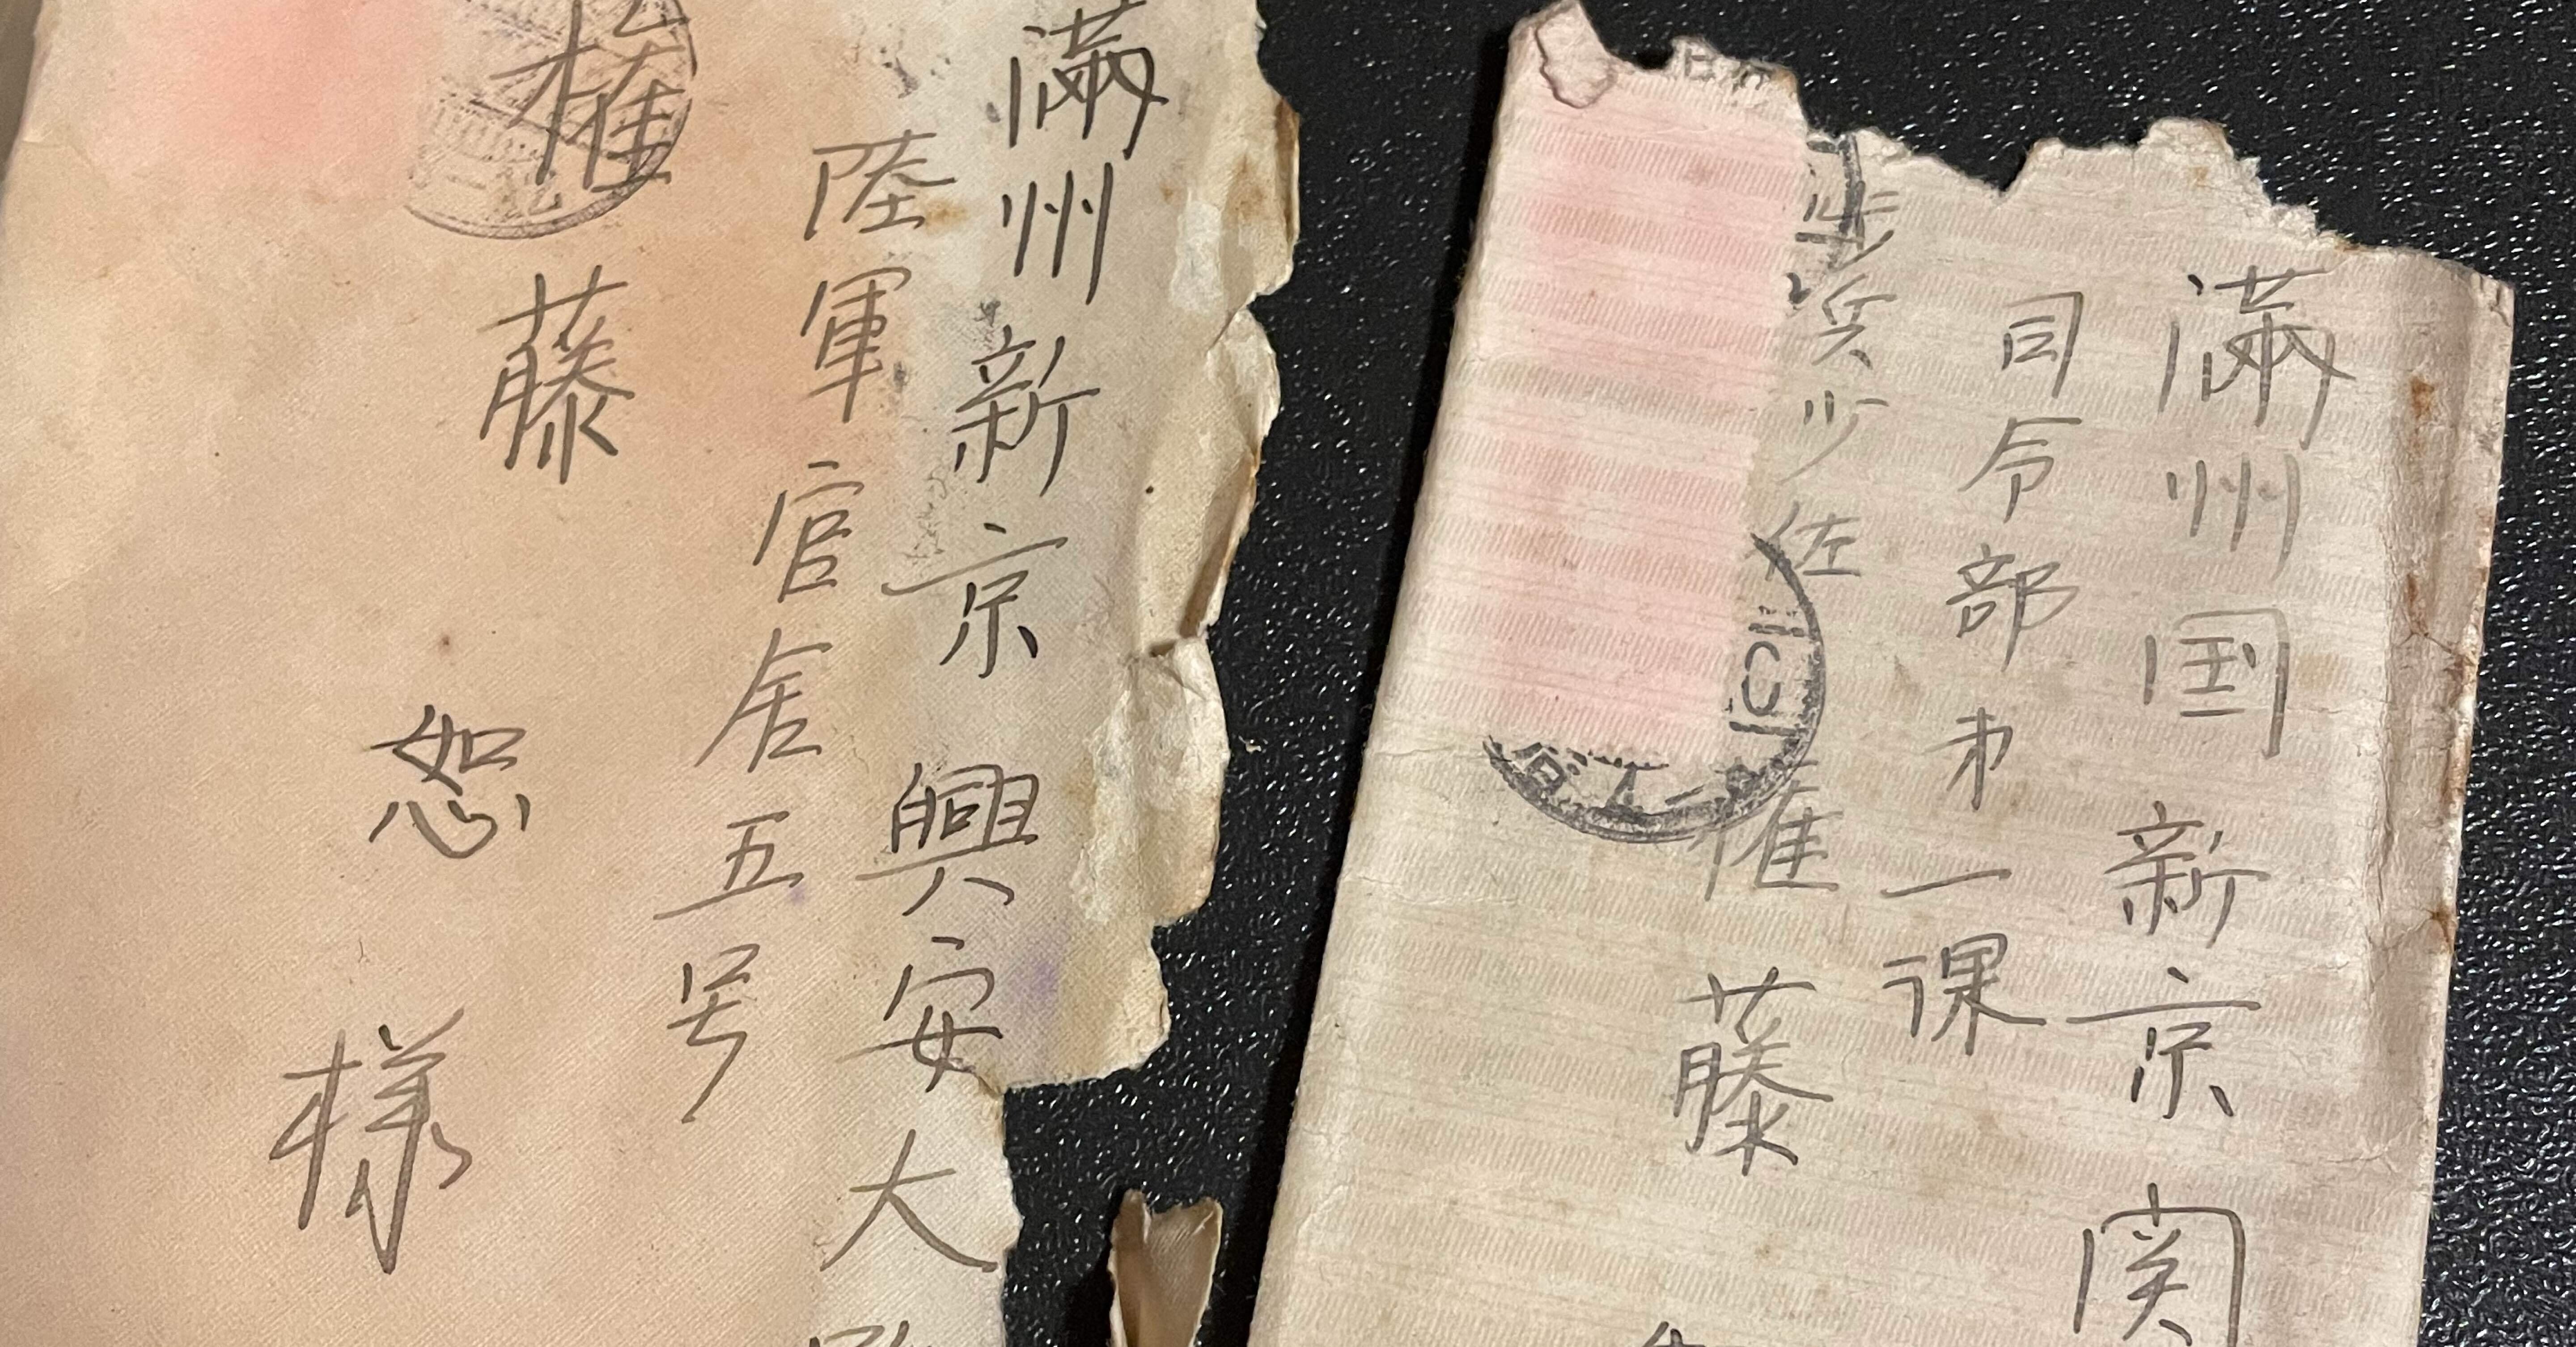 満州新京興安大
陸軍官舎五号
権藤恕様
満州国新京関
司令部㐧一課
歩兵少佐
権藤